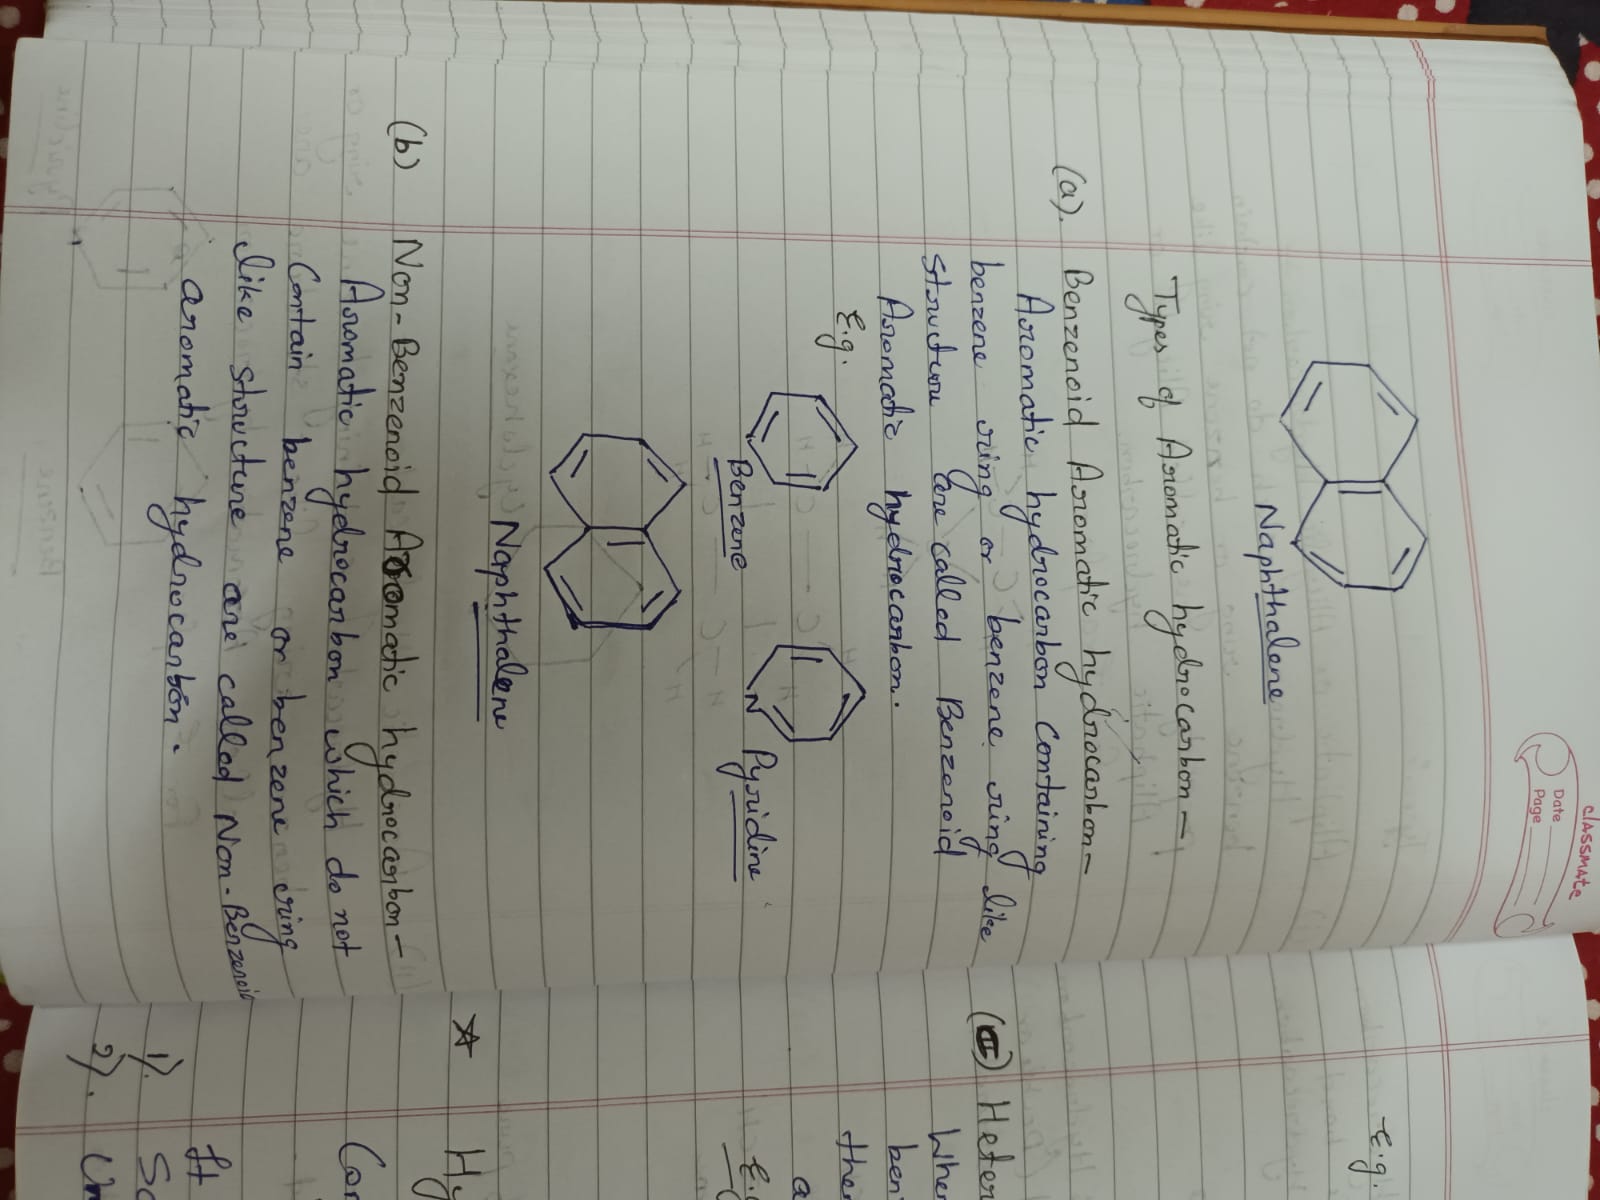 classmate
Date
Page
Naphthalene
Types of Aromatic hydrocarbon —
(a). Benzenoid Aromatic hydrocarbon —
Aromatic hydrocarbon containing
benzene ring or benzene ring like
structure are called Benzenoid
Aromatic hydrocarbon.
E.g.
N
Benzene
Pyridine
Naphthalene
(b) Non-Benzenoid Aromatic hydrocarbon —
Aromatic hydrocarbon which do not
Contain benzene or benzene ring
like structure are called Non-Benzenoid
aromatic hydrocarbon.
E.g.
(II) Heter
When
ben
ther
a
E.g
☆ Hy
Con
It
1). Sc
2). Un